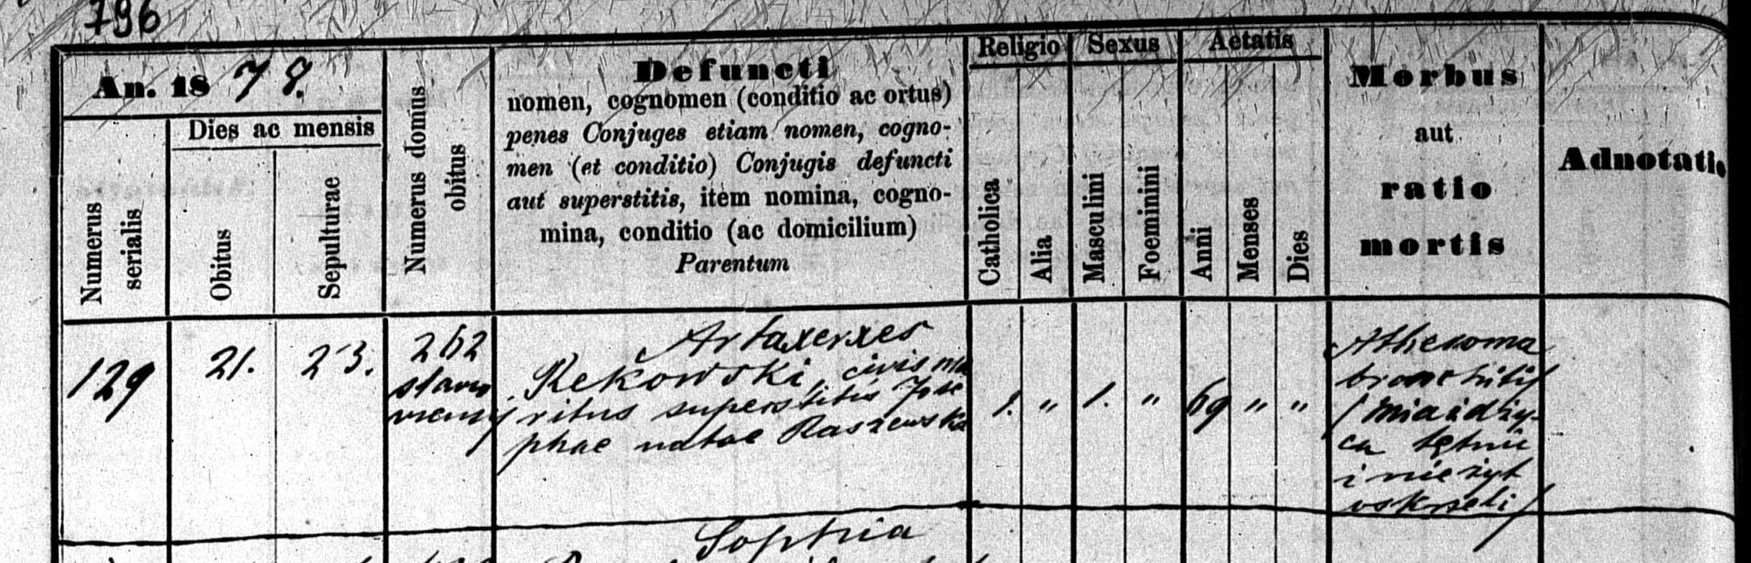 796
An. 1878.
Dies ac mensis
Numerus serialis
Obitus
Sepulturae
Numerus domus obitus
Defuncti
nomen, cognomen (conditio ac ortus)
penes Conjuges etiam nomen, cogno-
men (et conditio) Conjugis defuncti
aut superstitis, item nomina, cogno-
mina, conditio (ac domicilium)
Parentum
Religio
Catholica
Alia
Sexus
Masculini
Foeminini
Aetatis
Anni
Menses
Dies
Morbus
aut
ratio
mortis
Adnotatio
129
21.
23.
262
Artaxerxes
Rekowski, civis ma
ritus superstitis Jose
phae natae Raszewska
1.
"
1.
"
69
"
"
Atheroma
bronchitis
(miażdży-
ca tętnic
i nieżyt
oskrzeli)
Sophia